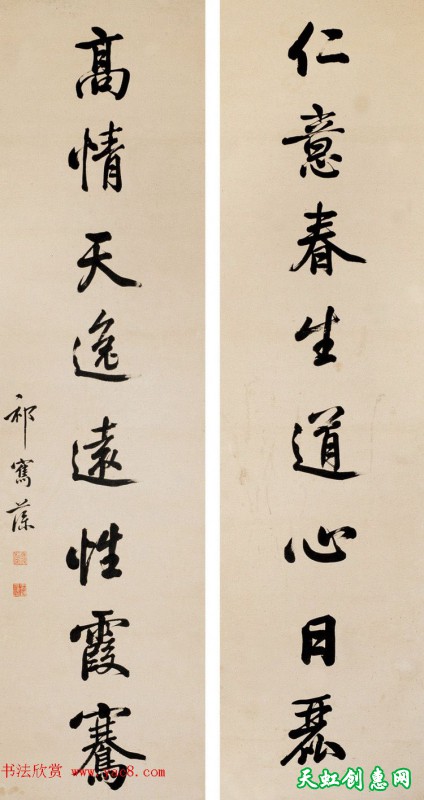 仁意春生道心日麗
高情天逸遠性霞騫
祁寯藻
书法欣赏 www.yac8.com
天虹创惠网